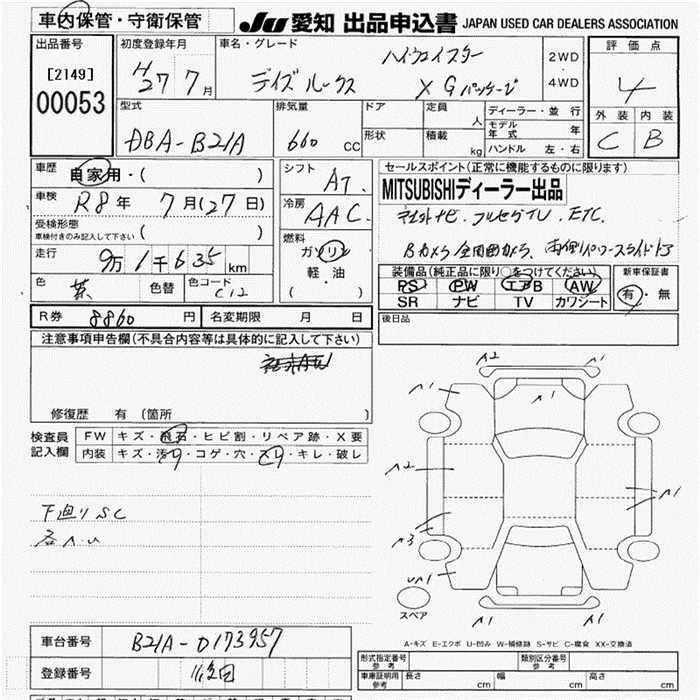 車内保管・守衛保管
JU 愛知 出品申込書 JAPAN USED CAR DEALERS ASSOCIATION
出品番号
[2149]
00053
初度登録年月
H27 7月
車名・グレード
ハイウェイスター
デイズルークス X Gパッケージ
2WD
4WD
評価点
4
外装 内装
C B
型式
DBA-B21A
排気量
660 CC
ドア
形状
定員
人
積載
kg
ディーラー・並行
モデル年式 年
ハンドル 左・右
車歴
自家用・( )
車検
R8年 7月(27日)
受検形態
車検付きのみ記入して下さい ( )
走行
9万1千635km
色
茶
色替
色コード
C12
シフト
AT
冷房
AAC
燃料
ガソリン
軽・油
( )
セールスポイント(正常に機能するものに限ります)
MITSUBISHIディーラー出品
ナビ、フルセグTV、ETC
Bカメラ 全周囲カメラ、両側パワースライドドア
装備品(純正品に限り○をつけてください)
PS PW エアB AW
SR ナビ TV カワシート
新車保証書
有・無
R券 8860円
名変期限 月 日
後日品
注意事項申告欄(不具合内容等は具体的に記入して下さい)
修復歴 有(箇所 )
検査員記入欄
FW キズ・飛石・ヒビ割・リペア跡・X要
内装 キズ・汚れ・コゲ・穴・スレ・キレ・破レ
下廻りSC
各A・U
A2
A1
A1
A1
A2
A1
A3
UA1
A1
A1
スペア
A-キズ E-エクボ U-凹み W-補修跡 S-サビ C-腐食 XX-交換済
車台番号
B21A-0173957
登録番号
形式指定番号
参考
類別区分番号
参考
車庫証明用
参考
長さ cm
幅 cm
高さ cm